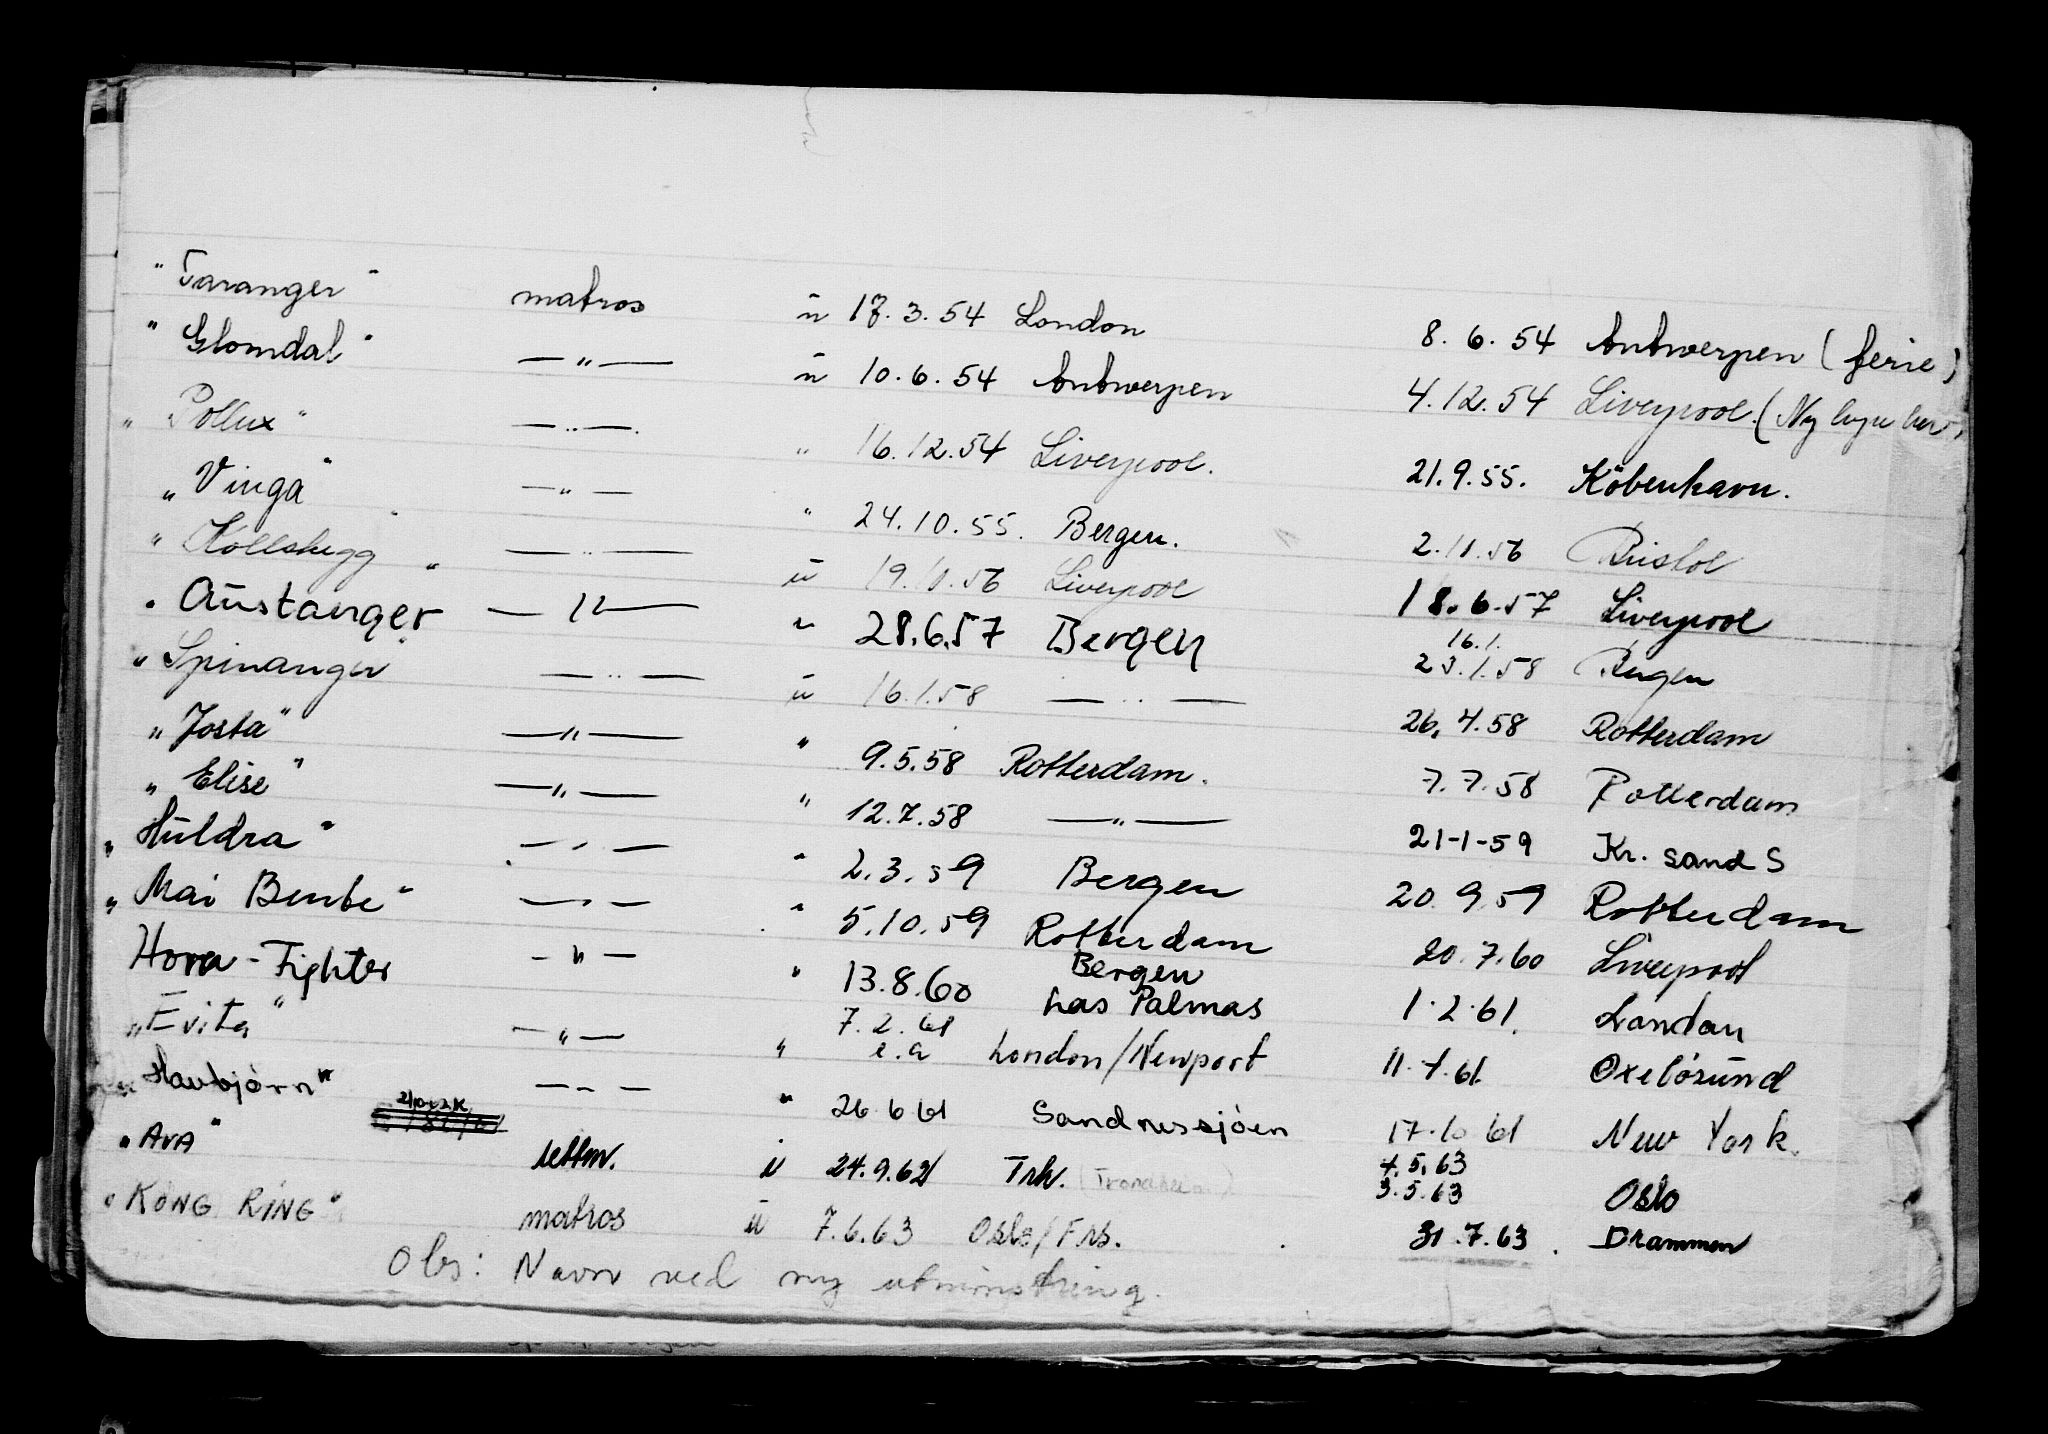 "Taranger" matros u 17.3.54 London 8.6.54 Antwerpen (ferie)
"Glomdal" — " — u 10.6.54 Antwerpen 4.12.54 Liverpool. (Ny
"Pollux" — " — " 16.12.54 Liverpool. 21.9.55. Köbenhavn.
"Vinga" — " — " 24.10.55. Bergen. 2.11.56 Bristol
"Kollskegg" — " — u 19.11.56 Liverpool 18.6.57 Liverpool
"Austanger" — " — " 28.6.57 Bergen 16.1. 23.1.58 Bergen
"Spinanger" — " — u 16.1.58 — " — 26.4.58 Rotterdam
"Josta" — " — " 9.5.58 Rotterdam. 7.7.58 Rotterdam
"Elise" — " — " 12.7.58 — " — 21-1-59 Kr. sand S
"Huldra" — " — " 2.3.59 Bergen 20.9.59 Rotterdam
"Mai Bente" — " — " 5.10.59 Rotterdam 20.7.60 Liverpool
Hova-Fighter — " — " 13.8.60 Bergen Las Palmas 1.2.61. London
"Evita" — " — " 7.2.61 e.a London/Newport 11.4.61. Oxelösund
"Havbjørn" — " — " 26.6.61 Sandnessjøen 17.10.61 New York.
"AVA" lettm. u 24.9.62 Trh. (Trondheim) 4.5.63 3.5.63 Oslo
"KONG RING" matros u 7.6.63 Oslo/Frs. 31.7.63. Drammen
Obs: Navn ved ny utmønstring.